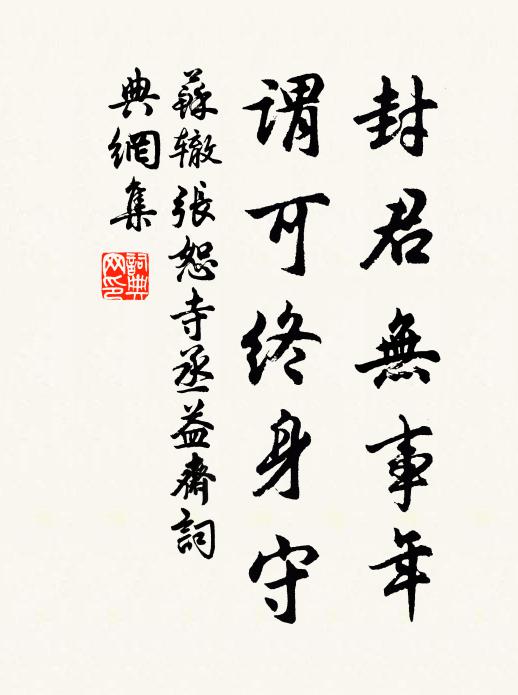 封君無事年
謂可終身守
蘇轍張恕寺丞益齋詞
典網集
詞典網印